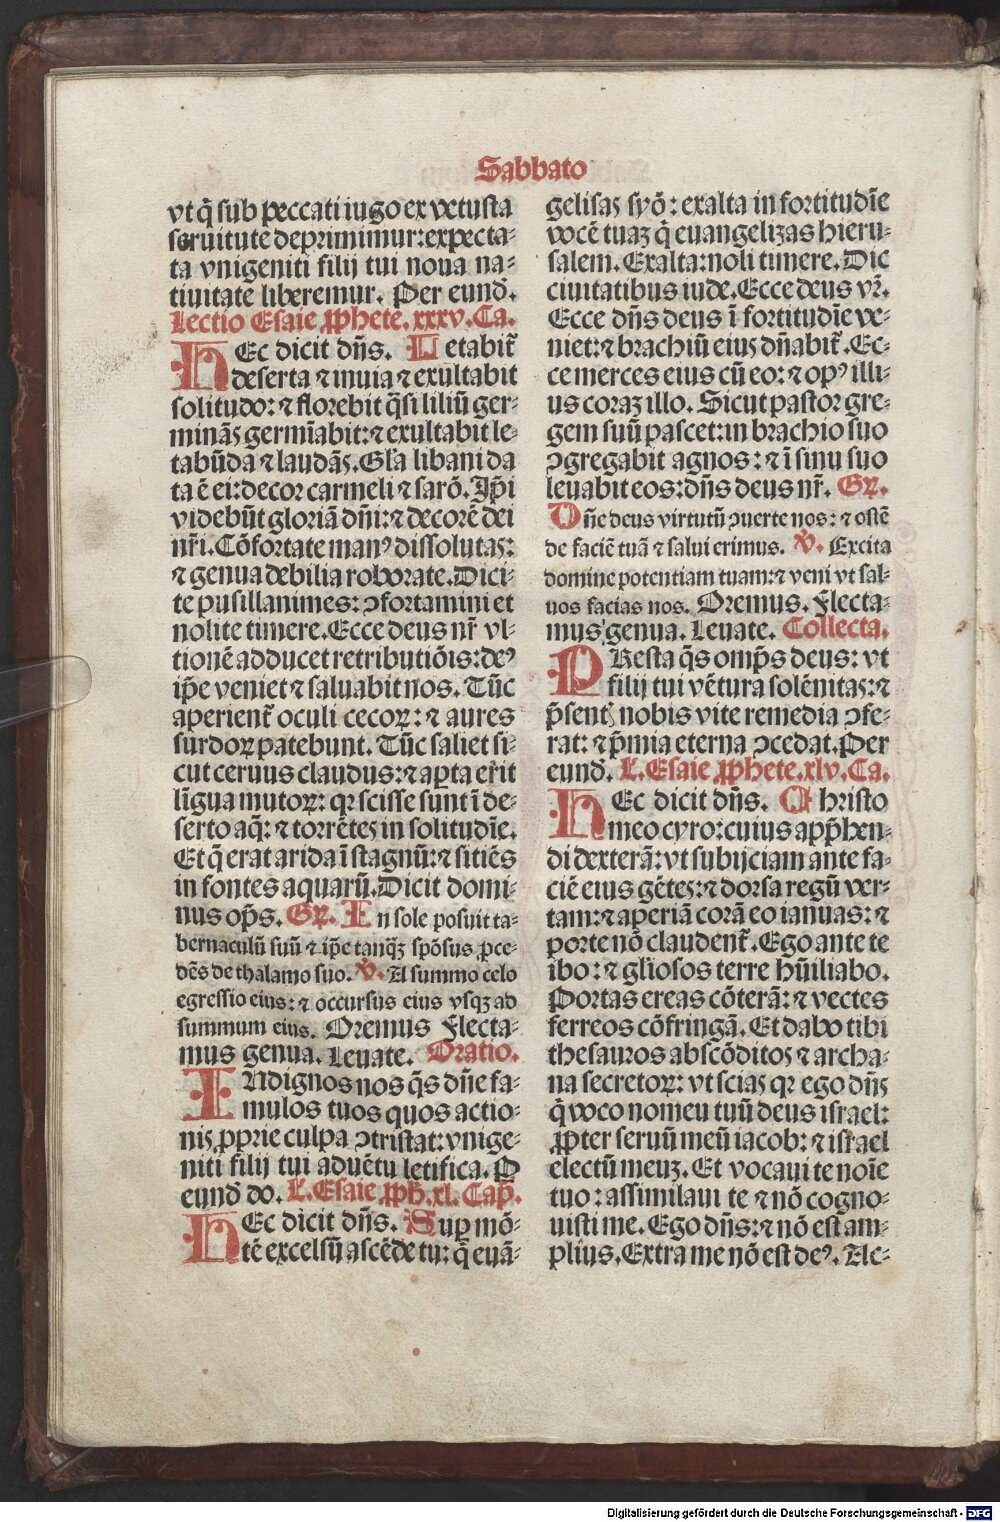 Sabbato
vt q̄ sub peccati iugo ex vetusta
seruitute deprimimur: expecta⸗
ta vnigeniti filij tui noua na⸗
tiuitate liberemur. Per eund̄.
Lectio Esaie ꝓphete. xxxv. Ca.
HEc dicit dn̄s. Letabit᷑
deserta ⁊ inuia ⁊ exultabit
solitudo: ⁊ florebit q̄si liliū ger⸗
minās germīabit: ⁊ exultabit le⸗
tabūda ⁊ laudās. Gl̄a libani da
ta ē ei: decor carmeli ⁊ sarō. Ip̄i
videbūt gloriā dn̄i: ⁊ decorē dei
nr̄i. Cōfortate manꝰ dissolutas:
⁊ genua debilia roborate. Dici⸗
te pusillanimes: ↄfortamini et
nolite timere. Ecce deus nr̄ vl⸗
tionē adducet retributiōis: deꝰ
ip̄e veniet ⁊ saluabit nos. Tūc
aperient᷑ oculi cecoꝝ: ⁊ aures
surdoꝝ patebunt. Tūc saliet si⸗
cut ceruus claudus: ⁊ apta erit
līgua mutoꝝ: qꝛ scisse sunt ī de⸗
serto aq̄: ⁊ torrētes in solitudīe.
Et q̄ erat arida ī stagnū: ⁊ sitiēs
in fontes aquarū. Dicit domi⸗
nus op̄s. Gꝝ. In sole posuit ta⸗
bernaculū suū ⁊ ip̄e tanqꝫ spōsus ꝓce⸗
dēs de thalamo suo. ℣. A summo celo
egressio eius: ⁊ occursus eius vsqꝫ ad
summum eius. Oremus Flecta⸗
mus genua. Leuate. Oratio.
INdignos nos q̄s dn̄e fa⸗
mulos tuos quos actio⸗
nis ꝓprie culpa ↄtristat: vnige⸗
niti filij tui aduētu letifica. P
eund̄ do. L. Esaie ꝓph̄. xl. Cap̄.
HEc dicit dn̄s. Sup mō⸗
tē excelsū ascēde tu: q̄ euā⸗
gelisas syō: exalta in fortitudīe
vocē tuaꝫ q̄ euangelizas hieru⸗
salem. Exalta: noli timere. Dic
ciuitatibus iude. Ecce deus vr̄.
Ecce dn̄s deus ī fortitudīe ve⸗
niet: ⁊ brachiū eius dn̄abit᷑. Ec⸗
ce merces eius cū eo: ⁊ opꝰ illi⸗
us coraꝫ illo. Sicut pastor gre⸗
gem suū pascet: in brachio suo
ↄgregabit agnos: ⁊ ī sinu suo
leuabit eos: dn̄s deus nr̄. Gꝝ.
Dn̄e deus virtutū ↄuerte nos: ⁊ ostē
de faciē tuā ⁊ salui erimus. ℣. Excita
domine potentiam tuam: ⁊ veni vt sal⸗
uos facias nos. Oremus. Flecta⸗
mus genua. Leuate. Collecta.
PResta q̄s omp̄s deus: vt
filij tui vētura solēnitas: ⁊
p̄sentꝭ nobis vite remedia ↄfe⸗
rat: ⁊ p̄mia eterna ↄcedat. Per
eund̄. L. Esaie ꝓphete. xlv. Ca.
HEc dicit dn̄s. Christo
meo cyro: cuius app̄hen⸗
di dexterā: vt subijciam ante fa⸗
ciē eius gētes: ⁊ dorsa regū ver⸗
tam: ⁊ aperiā corā eo ianuas: ⁊
porte nō claudent᷑. Ego ante te
ibo: ⁊ gl̄iosos terre hūiliabo.
Portas ereas cōterā: ⁊ vectes
ferreos cōfringā. Et dabo tibi
thesauros abscōditos ⁊ archa⸗
na secretoꝝ: vt scias qꝛ ego dn̄s
q̄ voco nomeu tuū deus israel:
ꝓpter seruū meū iacob: ⁊ israel
electū meuꝫ. Et vocaui te noīe
tuo: assimilaui te ⁊ nō cogno⸗
uisti me. Ego dn̄s: ⁊ nō est am⸗
plius. Extra me nō est deꝰ. Ac⸗
Digitalisierung gefördert durch die Deutsche Forschungsgemeinschaft - DFG